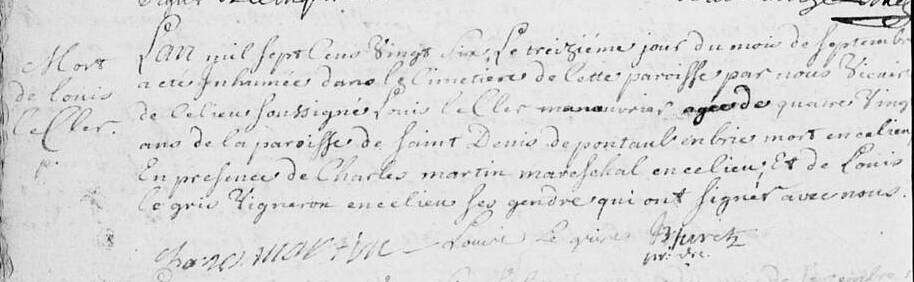 Mort
de Louis
leCler.
p.
L'an mil sept Cens Vingt Six, Le treiziéme jour du mois de septembre
a eté Inhumée dans le Cimetiere de Cette paroisse par nous Vicaire
de Celieu soussigné Louis leCler manouvrier agée de quatre Vingt
ans de la paroisse de saint Denis de pontaul en brie mort encelieu
En presence de Charles martin mareschal encelieu, Et de Louis
le gris Vigneron encelieu ses gendre qui ont signér avec nous.
martin Louis Le gris